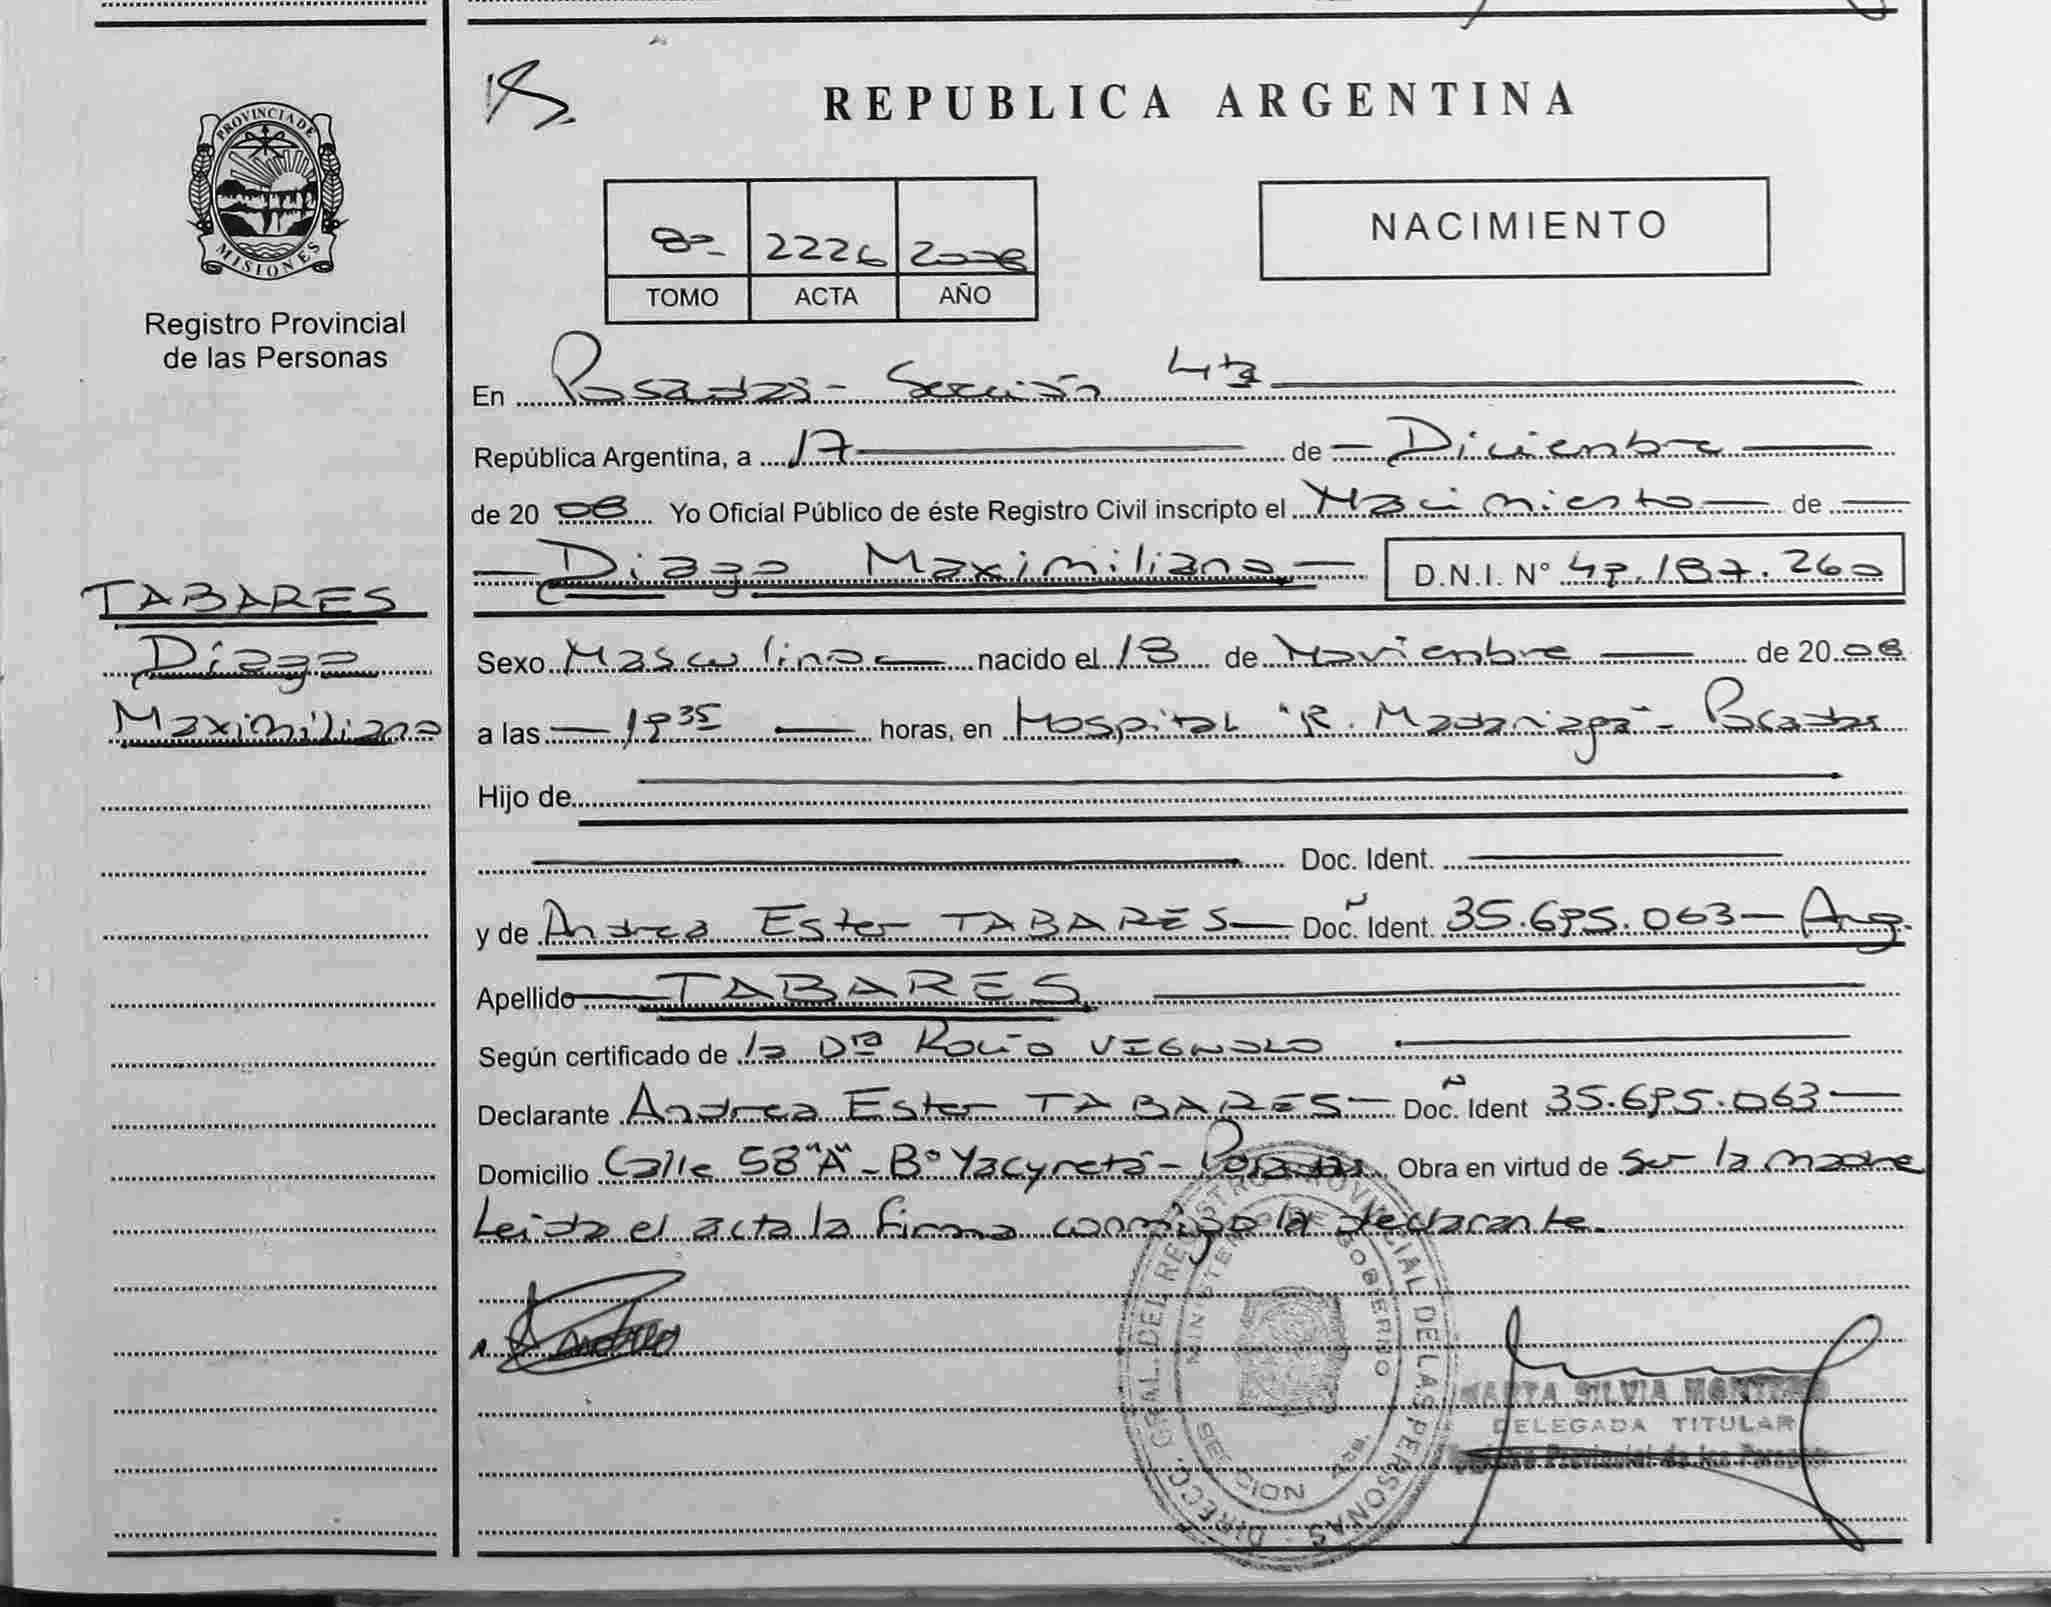 REPUBLICA ARGENTINA
PROVINCIA DE
MISIONES
Registro Provincial
de las Personas
8º- 2226 2008
TOMO ACTA AÑO
NACIMIENTO
En Posadas- Sección 4ta
República Argentina, a 17 de Diciembre
de 2008 Yo Oficial Público de éste Registro Civil inscripto el Nacimiento de
Diago Maximiliano D.N.I. Nº 49.187.260
TABARES
Diago
Maximiliano
Sexo Masculino nacido el 18 de Noviembre de 2008
a las 1935 horas, en Hospital "R. Madariaga"- Posadas
Hijo de
Doc. Ident.
y de Andrea Ester TABARES Doc. Ident. 35.695.063- Arg.
Apellido TABARES
Según certificado de la Dra Rocío VIGNOLO
Declarante Andrea Ester TABARES- Doc. Ident 35.695.063
Domicilio Calle 58"A"- Bº Yacyretá- Posadas Obra en virtud de ser la madre
Leida el acta la firma conmigo la declarante.
DIRECC. GRAL. DEL REGISTRO PROVINCIAL DE LAS PERSONAS
MINISTERIO DE GOBIERNO
SECCION
MARTA SILVIA
DELEGADA TITULAR
Provincial de las Personas